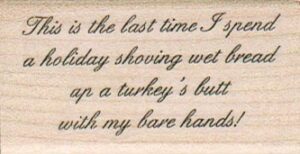 This is the last time I spend
a holiday shoving wet bread
up a turkey's butt
with my bare hands!